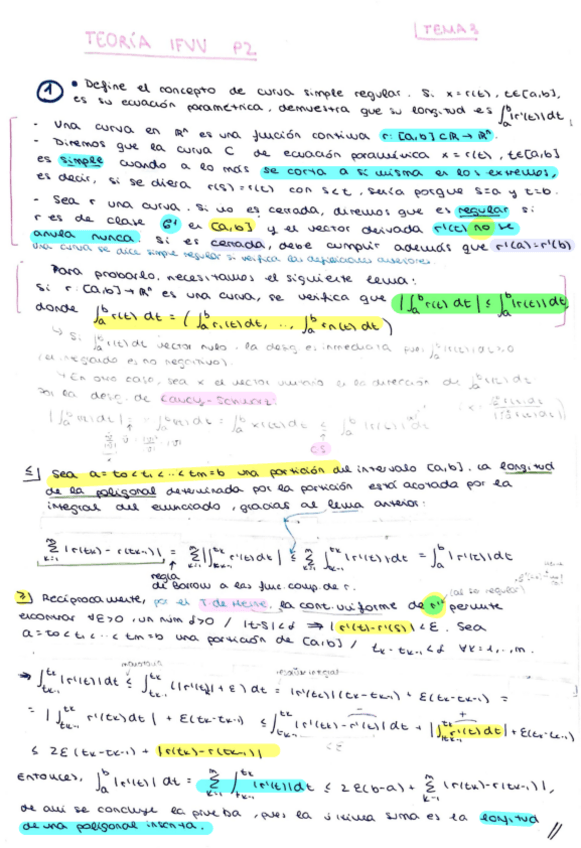 TEMA 3
TEORÍA IFVV P2
① • Define el concepto de curva simple regular. Si x = r(t), t∈[a,b],
es su ecuación paramétrica, demuestra que su longitud es ∫ₐᵇ|r'(t)|dt.
- Una curva en ℝⁿ es una función continua r: [a,b]⊂ℝ → ℝⁿ.
- Diremos que la curva C de ecuación paramétrica x = r(t), t∈[a,b]
es simple cuando a lo más se corta a sí misma en los extremos,
es decir, si se diera r(s) = r(t) con s<t, sería porque s=a y t=b.
- Sea r una curva. Si no es cerrada, diremos que es regular si
r es de clase C¹ en [a,b] y el vector derivada r'(t) no se
anula nunca. Si es cerrada, debe cumplir además que r'(a)=r'(b)
una curva se dice simple regular si verifica las definiciones anteriores.
Para probarlo, necesitamos el siguiente lema:
Si r: [a,b]→ℝⁿ es una curva, se verifica que |∫ₐᵇ r(t) dt| ≤ ∫ₐᵇ|r(t)|dt,
donde ∫ₐᵇ r(t) dt = (∫ₐᵇ r₁(t)dt, ..., ∫ₐᵇ rn(t)dt)
↳ Si ∫ₐᵇ r(t)dt vector nulo, la desig. es inmediata pues ∫ₐᵇ|r(t)|dt≥0
(el integrando es no negativo).
↳ En otro caso, sea x el vector unitario en la dirección de ∫ₐᵇ r(t)dt.
Por la desig. de Cauchy-Schwarz:
CS
≤] Sea a = t₀<t₁<...<tm=b una partición del intervalo [a,b]. La longitud
de la poligonal determinada por la partición está acotada por la
integral del enunciado, gracias al lema anterior:
Σ|r(tk) - r(tk-1)| = Σ|∫ r'(t)dt| ≤ Σ∫|r'(t)|dt = ∫ₐᵇ|r'(t)|dt
regla
de Barrow a las func. comp. de r.
≥] Recíprocamente, por el T. de Heine, la cont. uniforme de r' permite
(al ser regular)
encontrar ∀ε>0, un núm δ>0 / |t-s|<δ ⇒ |r'(t)-r'(s)|<ε. Sea
a=t₀<t₁<...<tm=b una partición de [a,b] / tk-tk-1<δ ∀k=1,..,m.
⇒ ∫|r'(t)|dt ≤ ∫(|r'(tk)|+ε)dt = |r'(tk)|(tk-tk-1) + ε(tk-tk-1) =
= |∫r'(tk)dt| + ε(tk-tk-1) ≤ ∫|r'(tk)-r'(t)|dt + |∫r'(t)dt| + ε(tk-tk-1)
<ε
≤ 2ε(tk-tk-1) + |r(tk)-r(tk-1)|
Entonces, ∫ₐᵇ|r'(t)|dt = Σ∫|r'(t)|dt ≤ 2ε(b-a) + Σ|r(tk)-r(tk-1)|,
de aquí se concluye la prueba, pues la última suma es la longitud
de una poligonal inscrita. //